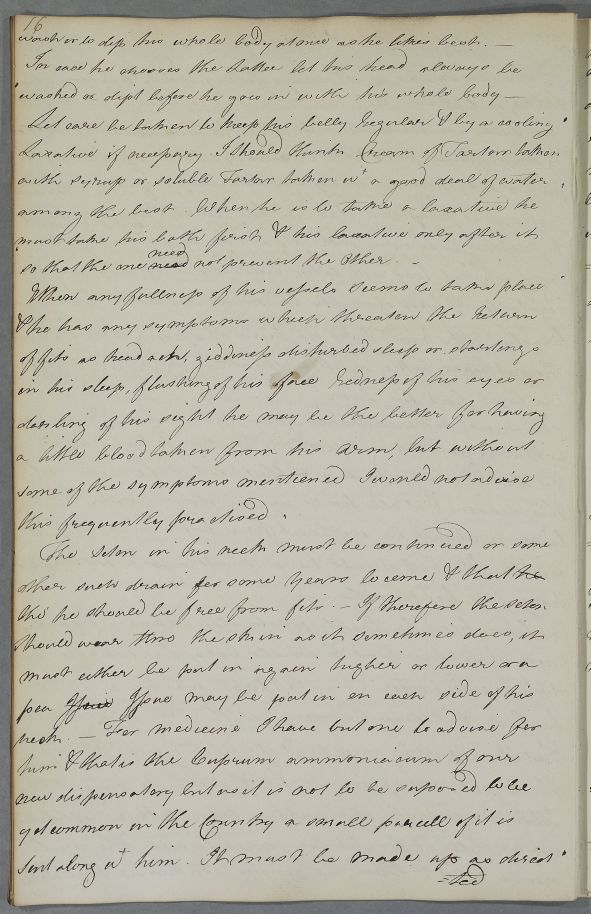 16
wash or to dip his whole body at once as he likes best. —
In case he chooses the latter let his head always be
washed or dipt before he goes in with his whole body —
Let care be taken to keep his belly regular & by a cooling
Laxative if necessary. I should think Cream of Tartar taken
with syrup or soluble Tartar taken wt a good deal of water
among the best. When he is to take a laxative he
must take his bath first & his laxative only after it
need
so that the one need not prevent the other. —
When any fullness of his vessels seems to take place
& he has any symptoms which threaten the return
of fits as head ach, giddiness disturbed sleep or startings
in his sleep, flushing of his face redness of his eyes or
dazling of his sight he may be the better for having
a little blood taken from his arm, but without
some of the symptoms mentioned I would not advise
this frequently practised.
The Seton in his neck must be continued or some
other such drain for some years to come & that he
tho' he should be free from fits. — If therefore the seton
should wear thro the skin as it sometimes does, it
must either be put in again higher or lower or a
pea Issue Issue may be put in on each side of his
neck. — For medicine I have but one to advise for
him & that is the Cuprum ammoniacum of our
new dispensatory but as it is not to be supposed to be
yet common in the Country a small parcell of it is
sent along wt him. It must be made up as direct
=ted